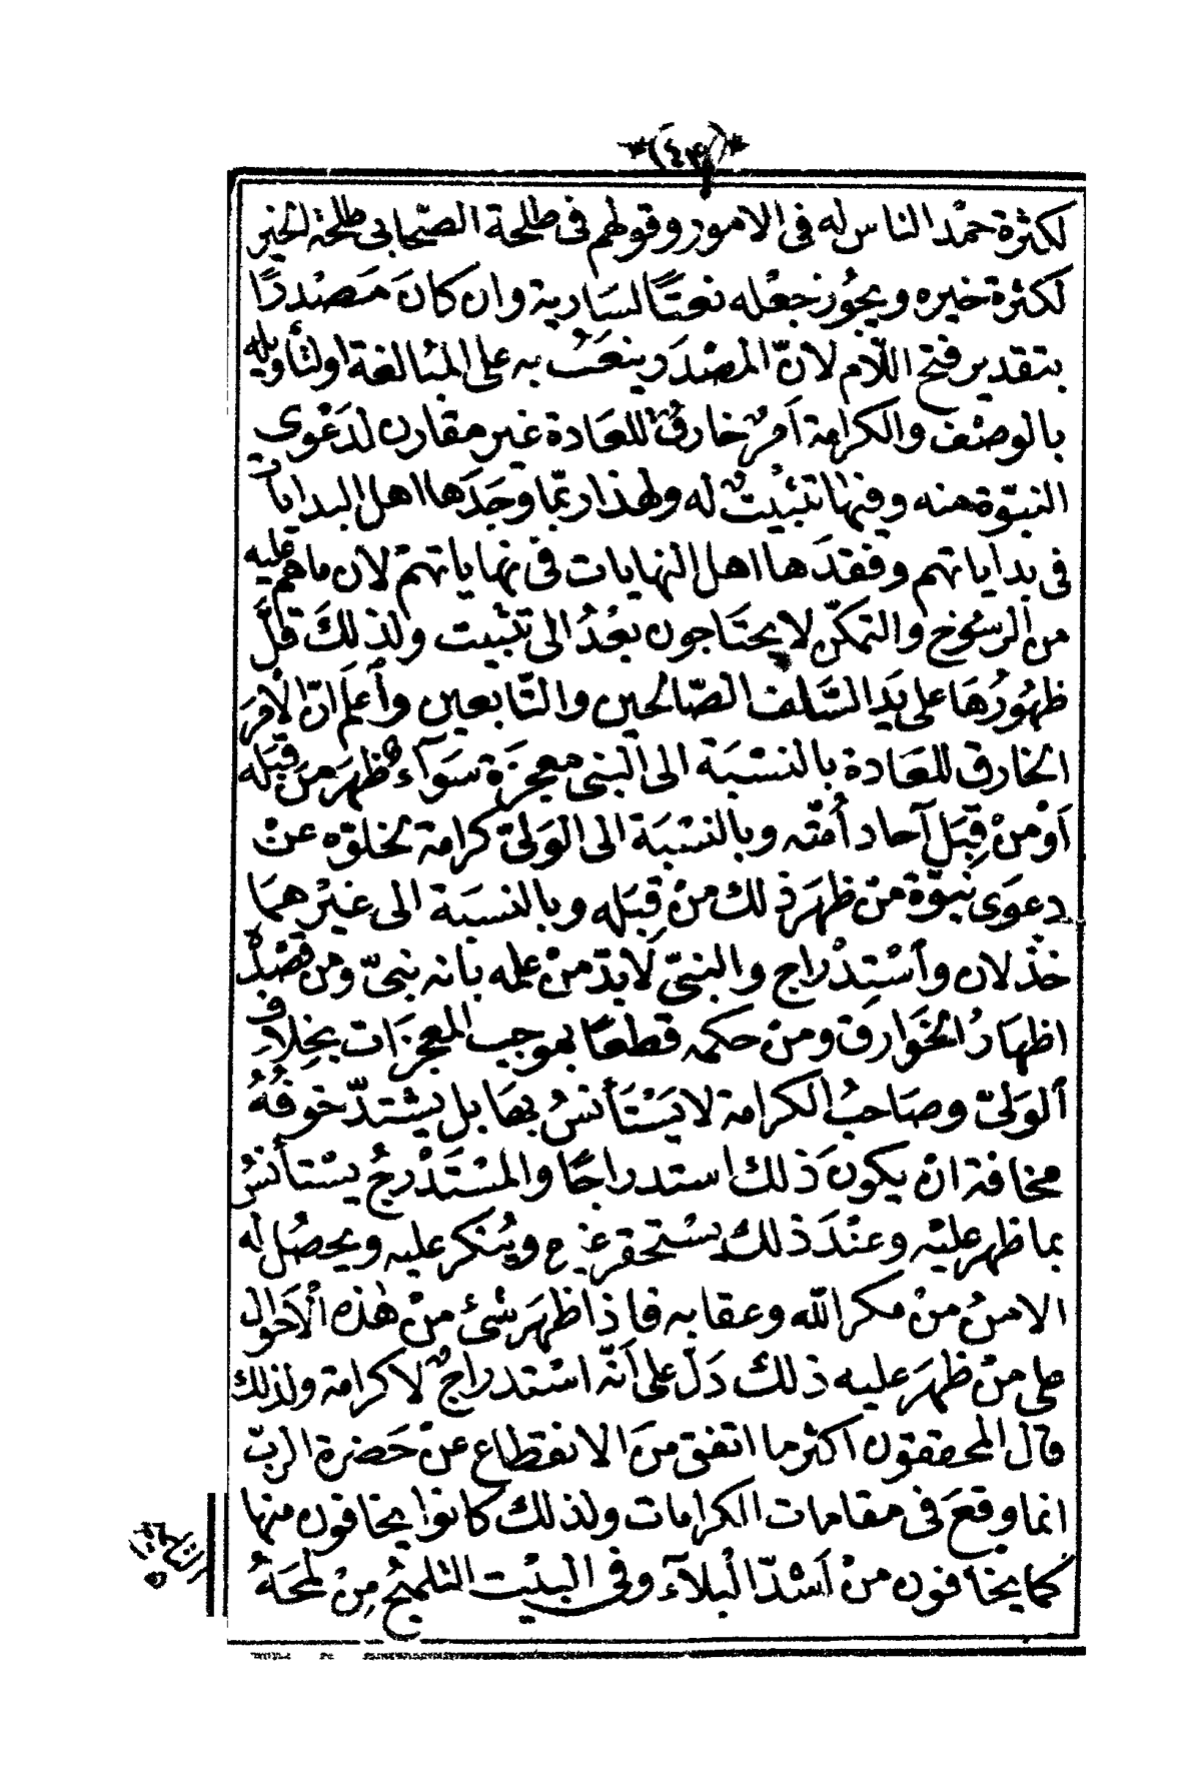 *(٤٣)*
لكثرة حمْد الناس له فى الامور وقولهم فى طلحة الصّحابى طلحة الخير
لكثرة خيره ويجُوز جعْله نعتًا لسَارية وان كانَ مَصْدرًا
بتقدير فتح اللّام لانّ المصْدَر ينعَتُ به على المبُالغة اولتأويله
بالوصْف والكرامة اَمرٌ خارقٌ للعَادة غير مقارن لدَعْوى
النبّوة منه وفيها تثبْيتٌ له ولهذا ربّما وَجَدَها اهل البدايات
فى بداياتهم وفقدَها اهل النهايات فى نهاياتهمْ لان ماهم عليه
من الرسُوخ والتمكّن لا يحتَاجون بعْدُ الى تثبيت ولذلِكَ قلَّ
ظهُورُهَا على يَد السَّلف الصّالحين والتّابعين وٱعلَم انّ الْامْرَ
الخارق للعَادة بالنسْبَة الى النبى معجزَة سَوآء ظهَرَ منْ قِبَله
اَوْ منْ قِبَل آحاد اُمّته وبالنسْبَة الى الوَلىّ كرامة لخلوّه عنْ
دعوَى نبوّة منْ ظهَرَ ذلك منْ قِبَله وبالنسبَة الى غيْرهمَا
خذْلان وٱسْتِدْراج والنبىّ لَابدّ منْ علمه بانه نبىّ ومن قصْدهْ
اظهَارُ الخوَارق ومنْ حكمه قطعًا بموجب المعجزَات بخِلافِ
ٱلوَلىّ وصَاحبُ الكرامة لا يَسْتَأنسُ بهَا بل يشتدّ خوفُهُ
مخافة انْ يكونَ ذلك استدراجًا والمسْتَدْرجُ يسْتأنسُ
بما ظهر عليْه وعنْدَ ذلك يسْتحقر غيره ويُنكر عليه ويحصُل له
الامنُ منْ مكر اللّه وعقابه فاذا ظهَرَ شئ منْ هٰذه الْاَحوال
على منْ ظهَرَ عليه ذلك دَلّ على اَنّه اسْتدراجٌ لاكرامة ولذلك
قال المحققون اكثر ما اتفق منَ الانقطاع عنْ حَضرة الربّ
انما وقعَ فى مقامات الكرامات ولذلك كانوا يخافون منها
كما يخافون منْ اَشدّ الْبلآء وفى البيْت التلميحُ مِنْ لمحَهُ